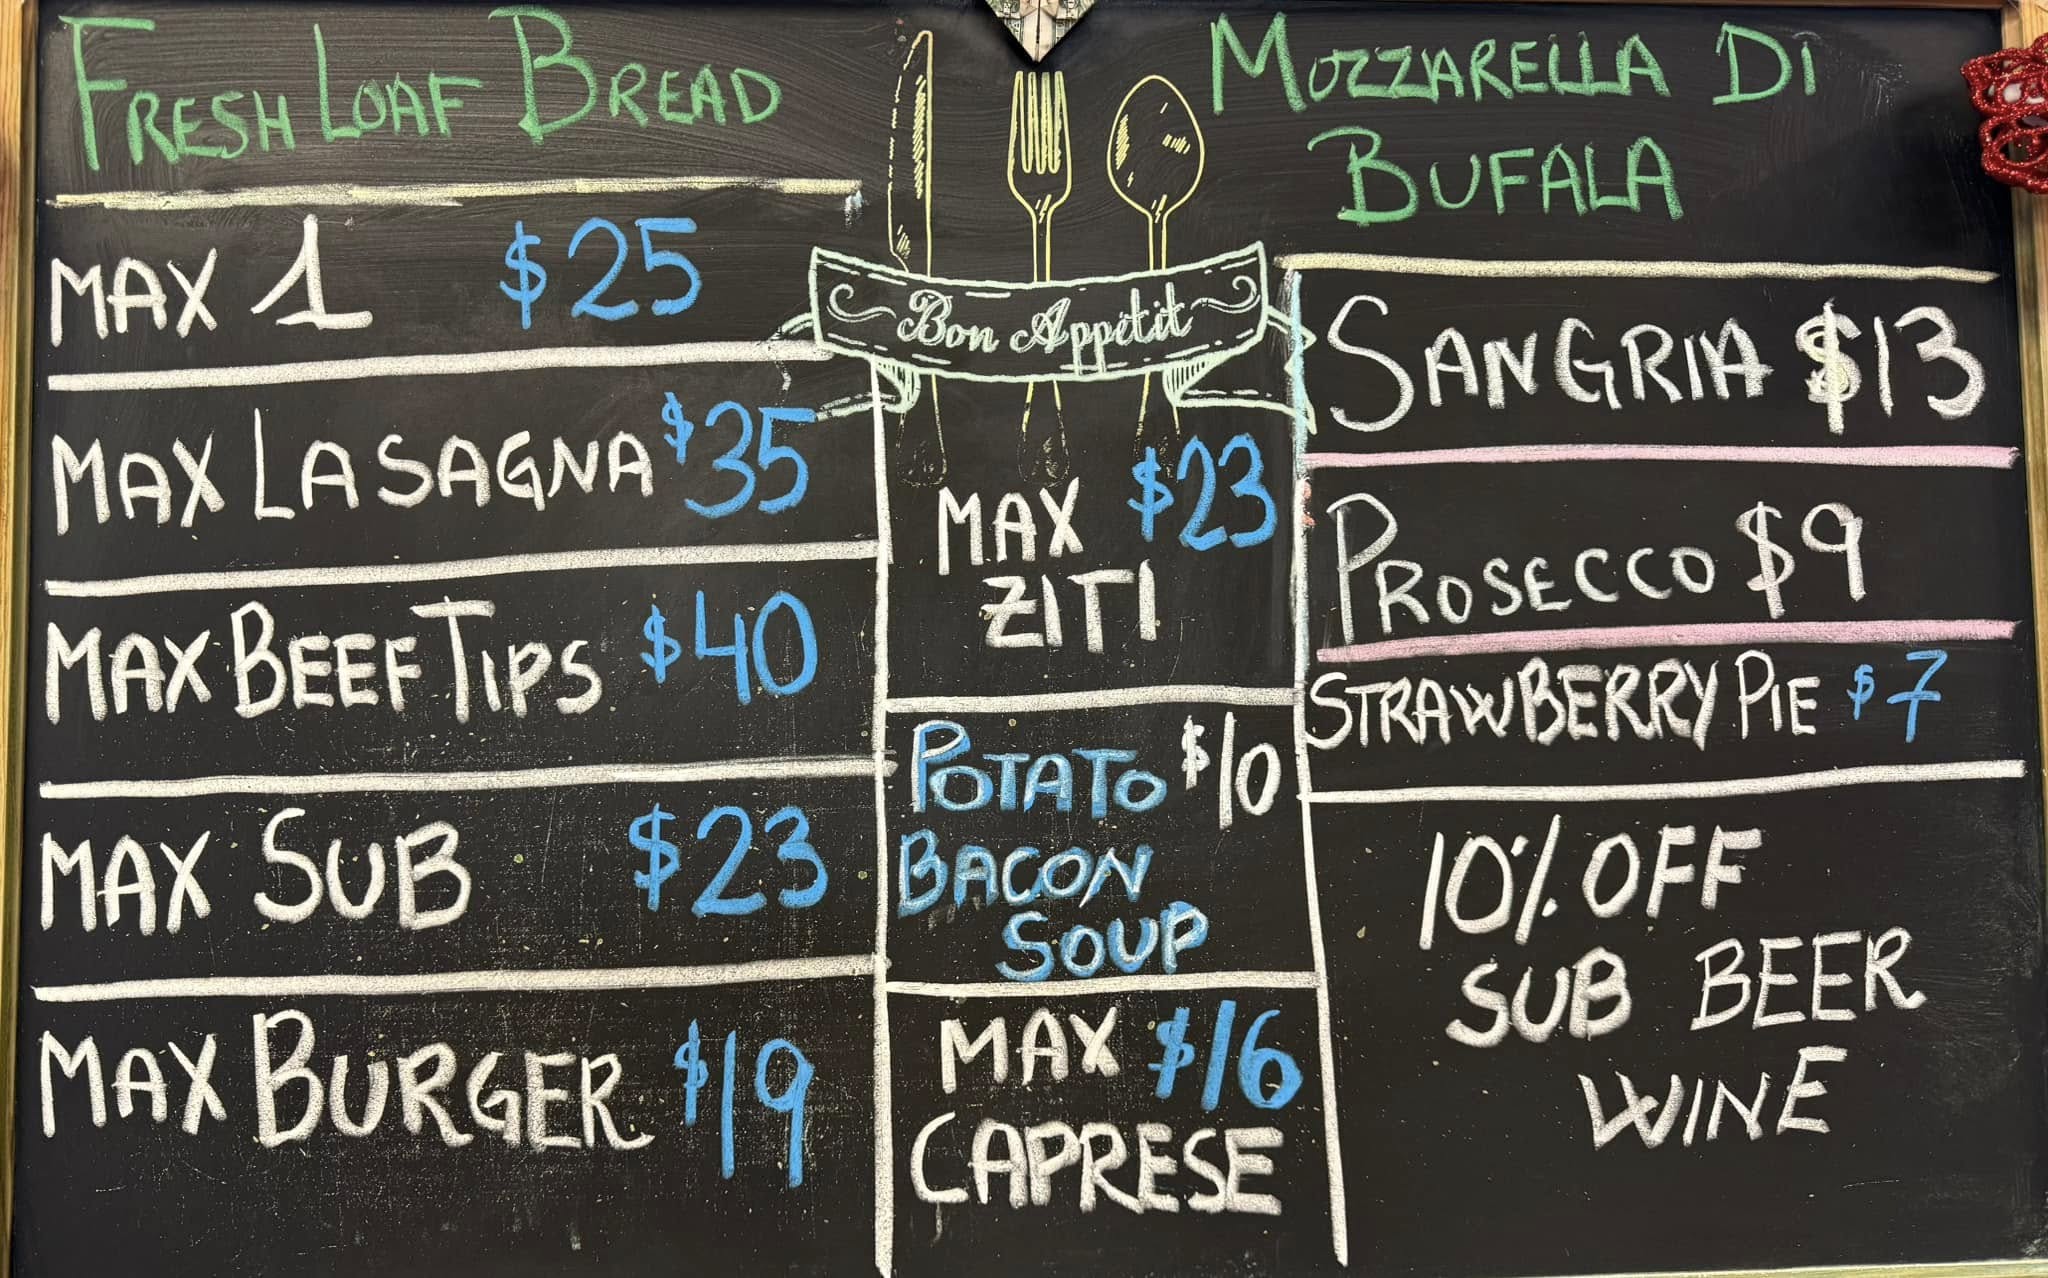 FRESH LOAF BREAD
MAX 1 $25
MAX LASAGNA $35
MAX BEEF TIPS $40
MAX SUB $23
MAX BURGER $19
Bon Appétit
MAX $23
ZITI
POTATO $10
BACON
SOUP
MAX $16
CAPRESE
MOZZARELLA DI
BUFALA
SANGRIA $13
PROSECCO $9
STRAWBERRY PIE $7
10% OFF
SUB BEER
WINE